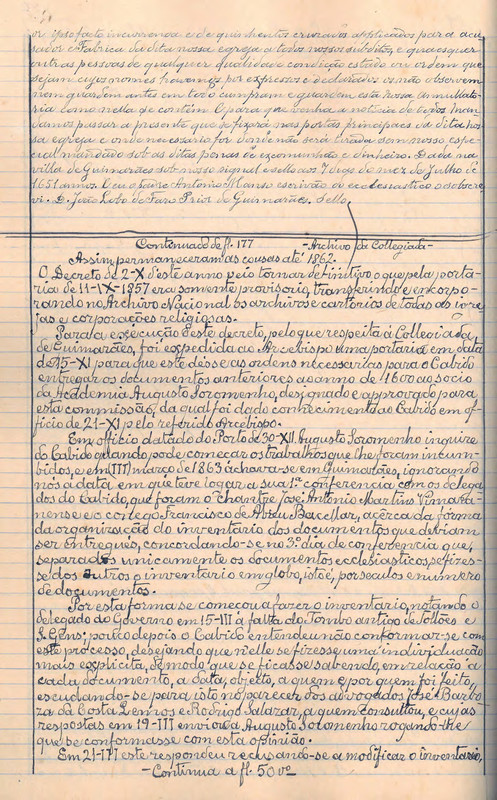 or ipso facto incorrenda e de quinhentos cruzados applicados para accu-
sador e Fabrica da dita nossa egreja a todos nossos subditos, e quaesquer
outras pessoas de qualquer qualidade e condição estado ou ordem que
sejam, cujos nomes havemos por expressos e declarados os não observem
nem guardem antes em todo cumpram e guardem esta nossa annullato-
ria como nella se contém. E para que venha a noticia de todos man-
damos passar a presente que se fixará nas portas principaes da dita nos-
sa egreja e onde necessario for donde não será tirada sem nosso espe-
cial mandado sob as ditas penas de excomunhão e dinheiro. Dada na
villa de Guimarães sob nosso signal e sello aos 7 dias do mez de Julho de
1651 annos. E eu o padre Antonio Manso escrivão do ecclesiastico o sobscre-
vi. D. João Lobo de Faro Prior de Guimarães. Sello.
Continuado de fl. 177 - Archivo da Collegiada -
Assim permaneceram as cousas até 1862.
O Decreto de 2-X d'este anno veio tornar definitivo o que pela porta-
ria de 11-IX-1857 era somente provisorio, transferindo e encorpo-
rando no Archivo Nacional os archivos e cartorios de todas as igre-
jas e corporações religiosas.
Para a execução d'este decreto, pelo que respeita á Collegiada
de Guimarães, foi expedida ao Arcebispo uma portaria em data
de 15-XI para que este désse as ordens necessarias para o Cabido
entregar os documentos anteriores ao anno de 1600 ao socio
da Academia Augusto Soromenho, designado e approvado para
esta commissão, da qual foi dado conhecimento ao Cabido em of-
ficio de 21-XI pelo referido Arcebispo.
Em officio datado do Porto de 30-XII, Augusto Soromenho inquire
do Cabido quando póde começar os trabalhos que lhe foram incum-
bidos, e em (III) março de 1863 achava-se em Guimarães, ignorando
nós a data em que teve logar a sua 1.ª conferencia com os delega-
dos do Cabido, que foram o chantre José Antonio Martins Vimara-
nense e o conego Francisco de Abreu Bacellar, acêrca da fórma
da organização do inventario dos documentos que deviam
ser entregues, concordando-se no 3.º dia de conferencia que,
separados unicamente os documentos ecclesiasticos, se fizes-
se dos outros o inventario em globo, isto é, por seculos e numero
de documentos.
Por esta fórma se começou a fazer o inventario, notando o
delegado do Governo em 15-III a falta do Tombo antigo de Tolões e
S. Gens; pouco depois o Cabido entendeu não conformar-se com
este processo, desejando que n'elle se fizesse uma individuação
mais explicita, de modo que se ficasse sabendo, em relação a
cada documento, a data, objecto, a quem e por quem foi feito,
escudando-se para isto no parecer dos advogados José Barbo-
za da Costa Lemos e Rodrigo Salazar, a quem consultou, e cujas
respostas em 19-III enviou a Augusto Soromenho rogando-lhe
que se conformasse com esta opinião.
Em 21-III este respondeu recusando-se a modificar o inventario,
- Continua a fl. 50 vº